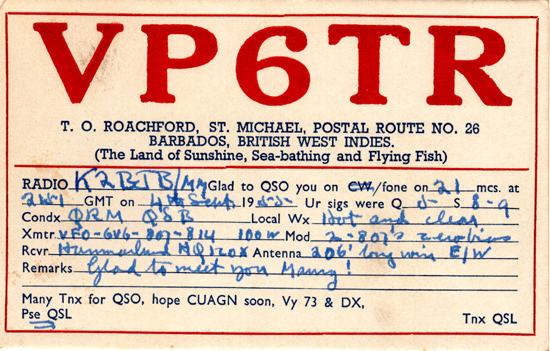 VP6TR
T. O. ROACHFORD, ST. MICHAEL, POSTAL ROUTE NO. 26
BARBADOS, BRITISH WEST INDIES.
(The Land of Sunshine, Sea-bathing and Flying Fish)
RADIO K2BTB/MM Glad to QSO you on CW/fone on 21 mcs. at
2151 GMT on 4th Sept. 1955 Ur sigs were Q 5 S 8-9
Condx QRM QSB Local Wx Hot and clear
Xmtr VFO-6V6-807-814 100W Mod 2-807's zero bias
Rcvr Hammarlund HQ120X Antenna 206' long wire E/W
Remarks Glad to meet you !
Many Tnx for QSO, hope CUAGN soon, Vy 73 & DX,
Pse QSL Tnx QSL